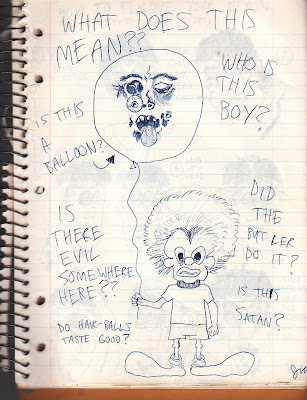 WHAT DOES THIS
MEAN??
WHO IS
THIS
BOY?
IS THIS
A
BALLOON?
IS
THERE
EVIL
SOMEWHERE
HERE??
DO HAIR-BALLS
TASTE GOOD?
DID
THE
BUTLER
DO IT?
IS THIS
SATAN?